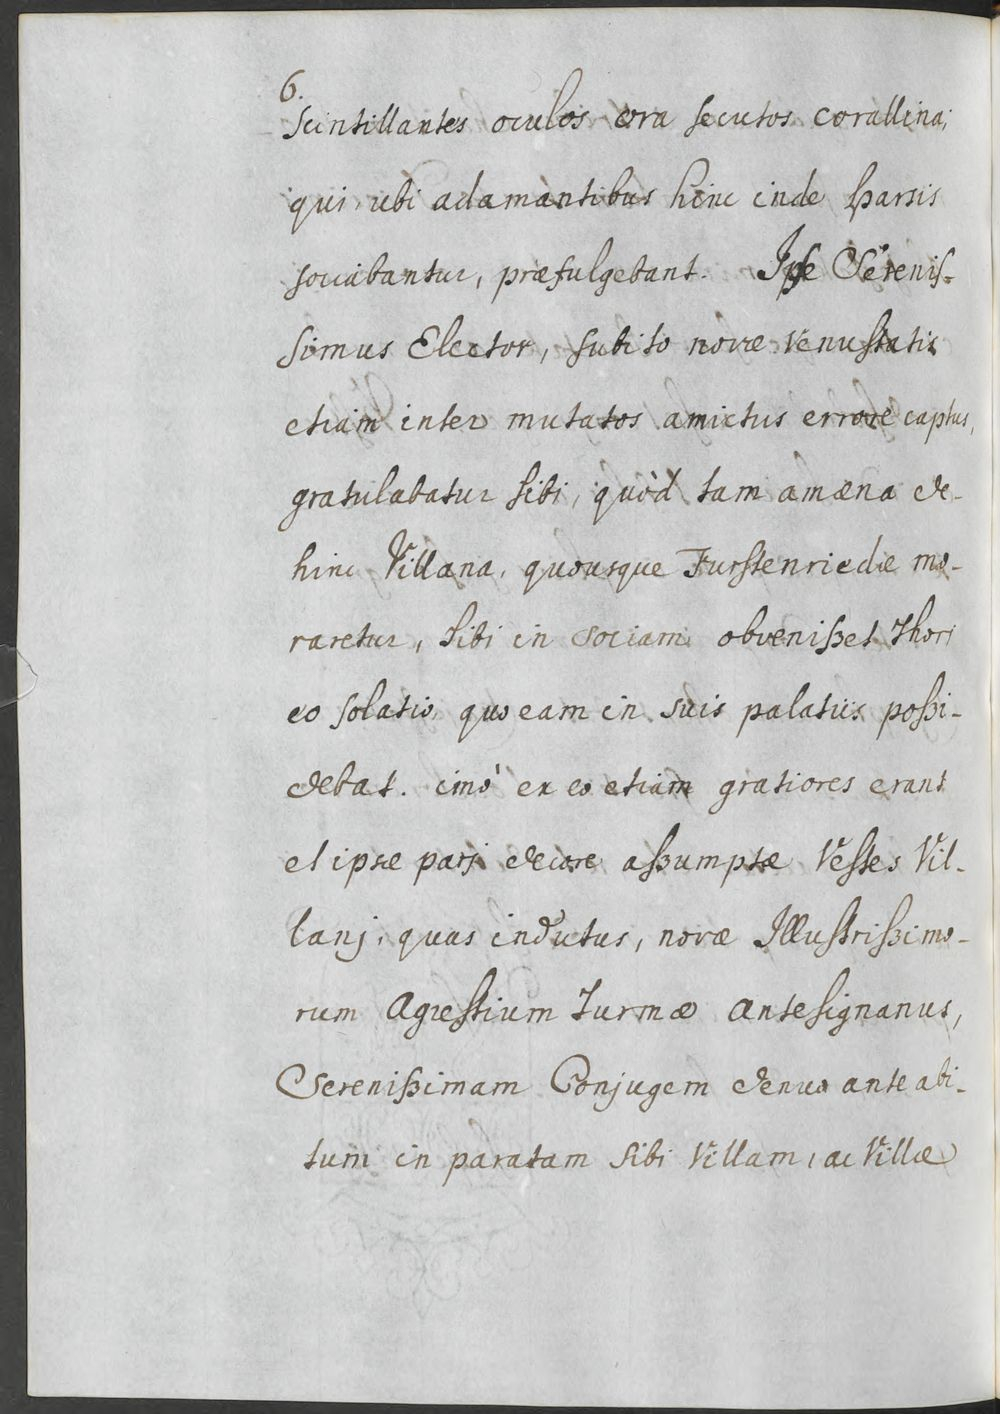 6.
Scintillantes oculos ora secutos corallina;
qui, ubi adamantibus hinc inde sparsis
sociabantur, præfulgebant. Ipse Serenis-
simus Elector, subito novæ Venustatis
etiam inter mutatos amictus errore captus,
gratulabatur sibi, quòd tam amæna de-
hinc Villana, quousque Furstenriedæ mo-
raretur, sibi in sociam obvenißet Thori
eo solatio, quo eam in suis palatiis poßi-
debat. imò ex eo etiam gratiores erant
et ipsæ parj decore aßumptæ Vestes Vil-
lanj, quas indutus, novæ Illustrißimo-
rum Agrestium Turmæ Antesignanus,
Serenißimam Conjugem denuo ante abi-
tum in paratam sibi Villam, ac Villæ